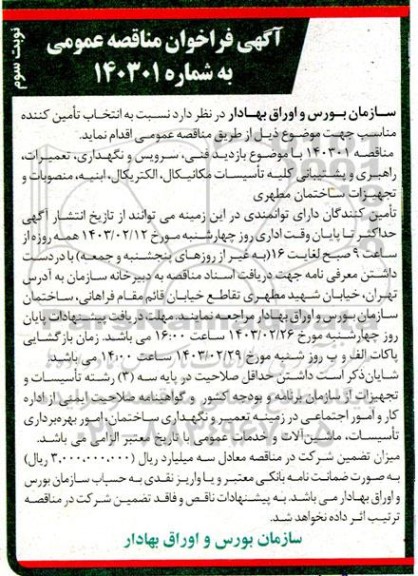 آگهی فراخوان مناقصه عمومی
به شماره ۱۴۰۳۰۱
نوبت سوم
سازمان بورس و اوراق بهادار در نظر دارد نسبت به انتخاب تأمین کننده
مناسب جهت موضوع ذیل از طریق مناقصه عمومی اقدام نماید.
مناقصه ۱۴۰۳۰۱ با موضوع بازدید فنی، سرویس و نگهداری، تعمیرات،
راهبری و پشتیبانی کلیه تأسیسات مکانیکال، الکتریکال، ابنیه، منصوبات و
تجهیزات ساختمان مطهری
تأمین کنندگان دارای توانمندی در این زمینه می توانند از تاریخ انتشار آگهی
حداکثر تا پایان وقت اداری روز چهارشنبه مورخ ۱۴۰۳/۰۲/۱۲ همه روزه از
ساعت ۹ صبح لغایت ۱۶(به غیر از روزهای پنجشنبه و جمعه) با در دست
داشتن معرفی نامه جهت دریافت اسناد مناقصه به دبیرخانه سازمان به آدرس
تهران، خیابان شهید مطهری تقاطع خیابان قائم مقام فراهانی، ساختمان
سازمان بورس و اوراق بهادار مراجعه نمایند. مهلت دریافت پیشنهادات پایان
روز چهارشنبه مورخ ۱۴۰۳/۰۲/۲۶ ساعت ۱۶:۰۰ می باشد. زمان بازگشایی
پاکات الف و ب روز شنبه مورخ ۱۴۰۳/۰۲/۲۹ ساعت ۱۴:۰۰ می باشد.
شایان ذکر است داشتن حداقل صلاحیت در پایه سه (۳) رشته تأسیسات و
تجهیزات از سازمان برنامه و بودجه کشور و گواهینامه صلاحیت ایمنی از اداره
کار و امور اجتماعی در زمینه تعمیر و نگهداری ساختمان، امور بهره برداری
تأسیسات، ماشین آلات و خدمات عمومی با تاریخ معتبر الزامی می باشد.
میزان تضمین شرکت در مناقصه معادل سه میلیارد ریال (۳.۰۰۰.۰۰۰.۰۰۰ ریال)
به صورت ضمانت نامه بانکی معتبر و یا واریز نقدی به حساب سازمان بورس
و اوراق بهادار می باشد. به پیشنهادات ناقص و فاقد تضمین شرکت در مناقصه
ترتیب اثر داده نخواهد شد.
سازمان بورس و اوراق بهادار